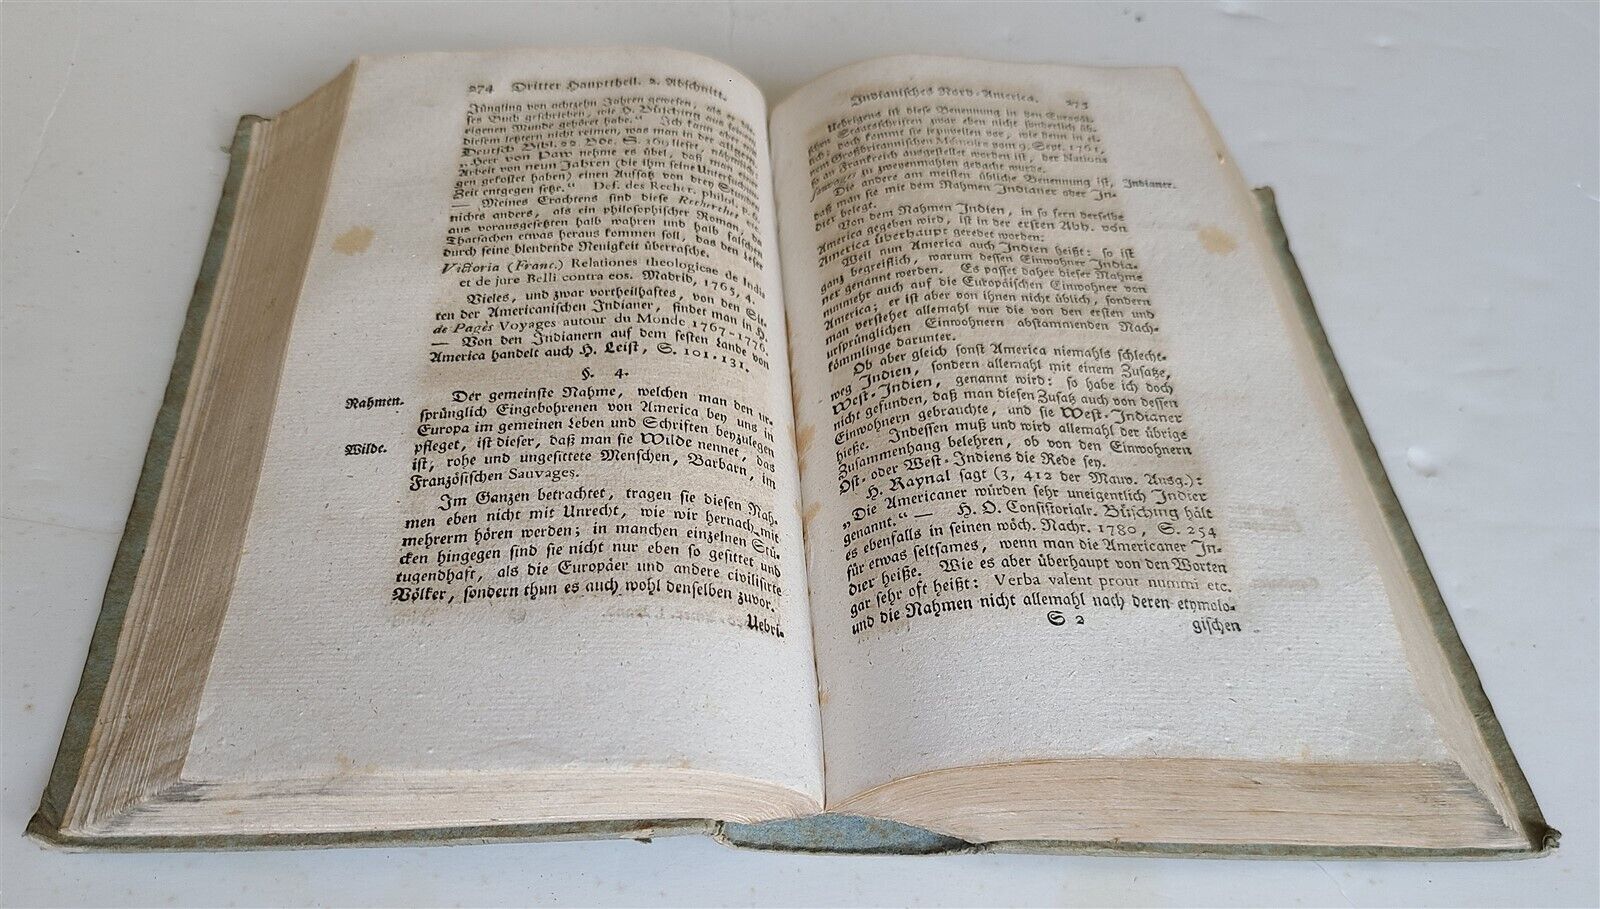 274 Dritter Haupttheil. 2. Abschnitt.
Jüngling von achtzehn Jahren gewesen, als er die-
ses Buch geschrieben, wie H. Büsching aus seinem
eigenen Munde gehöret habe." Ich kann aber mit
diesem letztern nicht reimen, was man in der allgem.
Deutsch. Bibl. 22. Bde. S. 169 lieset, nähmlich:
„Herr von Paw nehme es übel, daß man einer
Arbeit von neun Jahren (die ihm seine Untersuchun-
gen gekostet haben) einen Aufsatz von drey Stunden
Zeit entgegen setze." Def. des Recher. philos. p. 6.
— Meines Erachtens sind diese Recherches
nichts anders, als ein philosophischer Roman, da
aus vorausgesetzten halb wahren und halb falschen
Thatsachen etwas heraus kommen soll, das den Leser
durch seine blendende Neuigkeit überrasche.
Victoria (Franc.) Relationes theologicae de Indis
et de jure Belli contra eos. Madrib, 1765, 4.
Vieles, und zwar vortheilhaftes, von den Sit-
ten der Americanischen Indianer, findet man in H.
de Pagès Voyages autour du Monde 1767-1776.
— Von den Indianern auf dem festen Lande von
America handelt auch H. Leist, S. 101-131.
§. 4.
Nahmen. Der gemeinste Nahme, welchen man den ur-
sprünglich Eingebohrenen von America bey uns in
Europa im gemeinen Leben und Schriften beyzulegen
Wilde. pfleget, ist dieser, daß man sie Wilde nennet, das
ist, rohe und ungesittete Menschen, Barbarn, im
Französischen Sauvages.
Im Ganzen betrachtet, tragen sie diesen Nah-
men eben nicht mit Unrecht, wie wir hernach mit
mehrerm hören werden; in manchen einzelnen Stü-
cken hingegen sind sie nicht nur eben so gesittet und
tugendhaft, als die Europäer und andere civilisirte
Völker, sondern thun es auch wohl denselben zuvor.
Uebri-
Indianisches Nord-America. 275
Uebrigens ist diese Benennung in den Europäi-
schen Staatsschriften zwar eben nicht sonderlich üb-
lich; doch kommt sie bisweilen vor, wie denn in ei-
nem Großbritannischen Mémoire vom 9. Sept. 1761,
so an Frankreich ausgestellet worden ist, der Nations
sauvages zu zweyenmahlen gedacht wurde.
Die andere am meisten übliche Benennung ist, Indianer.
daß man sie mit dem Nahmen Indianer oder In-
dier belegt.
Von dem Nahmen Indien, in so fern derselbe
America gegeben wird, ist in der ersten Abh. von
America überhaupt geredet worden:
Weil nun America auch Indien heißt: so ist
ganz begreiflich, warum dessen Einwohner India-
ner genannt werden. Es passet daher dieser Nahme
nunmehr auch auf die Europäischen Einwohner von
America; er ist aber von ihnen nicht üblich, sondern
man verstehet allemahl nur die von den ersten und
ursprünglichen Einwohnern abstammenden Nach-
kömmlinge darunter.
Ob aber gleich sonst America niemahls schlecht-
weg Indien, sondern allemahl mit einem Zusatze,
West-Indien, genannt wird: so habe ich doch
nicht gefunden, daß man diesen Zusatz auch von dessen
Einwohnern gebrauchte, und sie West-Indianer
hieße. Indessen muß und wird allemahl der übrige
Zusammenhang belehren, ob von den Einwohnern
Ost- oder West-Indiens die Rede sey.
H. Raynal sagt (3, 412 der Mauv. Ausg.):
„Die Americaner würden sehr uneigentlich Indier
genannt." — H. O. Consistorialr. Büsching hält
es ebenfalls in seinen wöch. Nachr. 1780, S. 254
für etwas seltsames, wenn man die Americaner In-
dier heiße. Wie es aber überhaupt von den Worten
gar sehr oft heißt: Verba valent prout nummi etc.
und die Nahmen nicht allemahl nach deren etymolo-
S 2 gischen